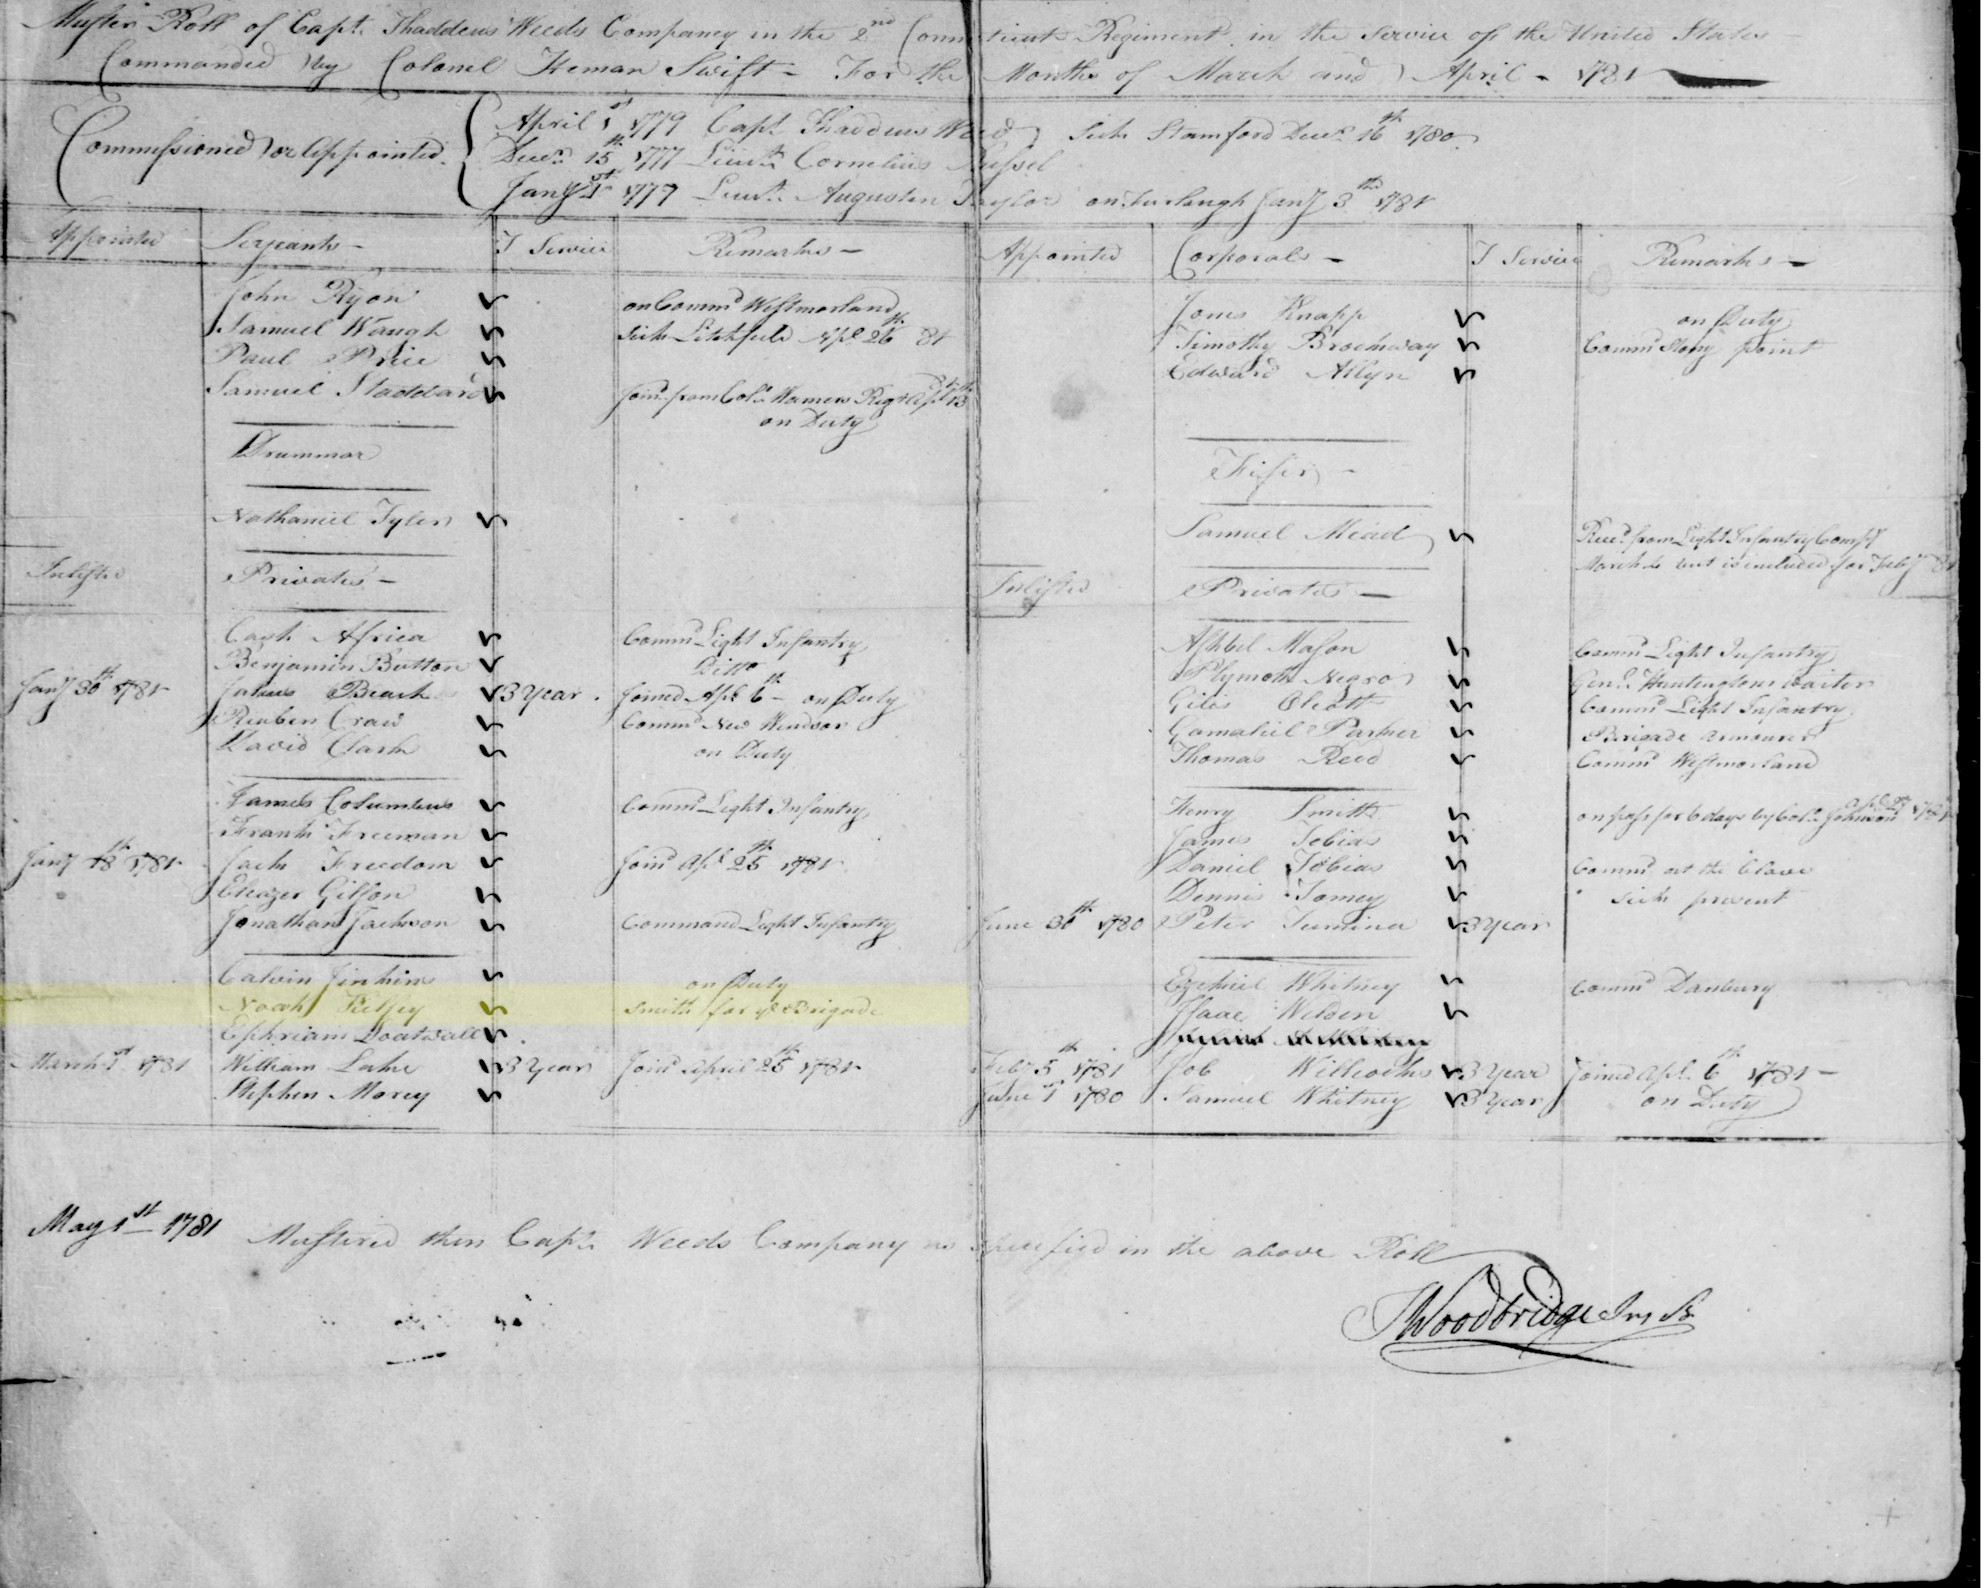 Muster Roll of Capt. Thaddeus Weeds Company in the 2nd Connecticut Regiment in the Service of the United States
Commanded by Colonel Heman Swift - For the Months of March and April - 1781
Commissioned or Appointed
April 1st 1779 Capt. Thaddeus Weed Sick Stamford Decr. 16th 1780
Decr. 15th 1777 Lieut. Cornelius Russel
Jany 1st 1777 Lieut. Augustin Taylor on Furlough Jany 3th 1781
Appointed Serjeants - T Service Remarks -
John Ryon on Commd Westmorland
Samuel Waugh Sick Litchfield Apl. 26th 81
Paul Price
Samuel Staddard Joind from Col. Warners Regt Apl 13th
on Duty
Drummer
Nathaniel Tyler
Inlisted Privates -
Cash Africa Commd Light Infantry
Benjamin Button Ditto
Jany 30th 1781 Julius Beach 3 Year Joined Apl. 6th - on Duty
Reuben Craw Commd New Windsor
David Clark on Duty
James Columbus Commd Light Infantry
Frank Freeman
Jany 18th 1781 Jack Freedom Joind Apl. 25th 1781
Eleazer Gilson
Jonathan Jackson Command Light Infantry
Calvin Jinkins on Duty
Noah Kelsey Smith for ye Brigade
Ephriam Loatwall
March 1st 1781 William Lake 3 Year Joind April 25th 1781
Stephen Morey
Appointed Corporals - T Service Remarks -
Jonas Knapp on Duty
Timothy Brockway Commd Stony point
Edward Allyn
Fifer -
Samuel Mead Recd. from Light Infantry Compy
March but is included for Feby 81
Inlisted Privates -
Ashbel Mason Commd Light Infantry
Plymoth Negro Genl. Huntingtons waiter
Giles Olcott Commd Light Infantry
Gamaliel Parker Brigade Armourer
Thomas Reed Commd Westmorland
Henry Smith on pass for 6 days by Col. Johnson 1781
James Tobias
Daniel Tobias Commd at the Clove
Dennis Tomey Sick present
June 30th 1780 Peter 3 Year
Ezekiel Whitney Commd Danbury
Isaac Welden
Feby 5th 1781 Job Willcocks 3 Year Joined Apl. 6th 1781 -
June 1st 1780 Samuel Whitney 3 Year on Duty
May 1st 1781 Mustered then Capt. Weeds Company as specified in the above Roll
Woodbridge